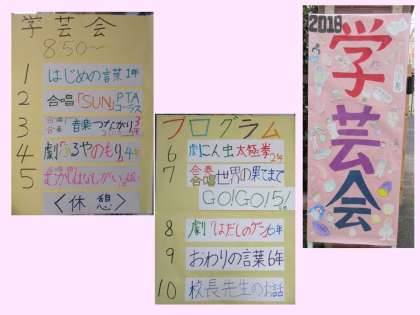 学芸会
8:50～
1 はじめの言葉 1年
2 合唱「SUN」PTAコーラス
3 合唱 合奏 音楽つながり 3年
4 劇 ろやのもり 4年
5
＜休憩＞
プログラム
6 劇 にん虫太極拳 2年
7 合奏 合唱 世界の果てまで
GO!GO!5!
8 劇「はだしのゲン」6年
9 おわりの言葉 6年
10 校長先生のお話
2018
学芸会